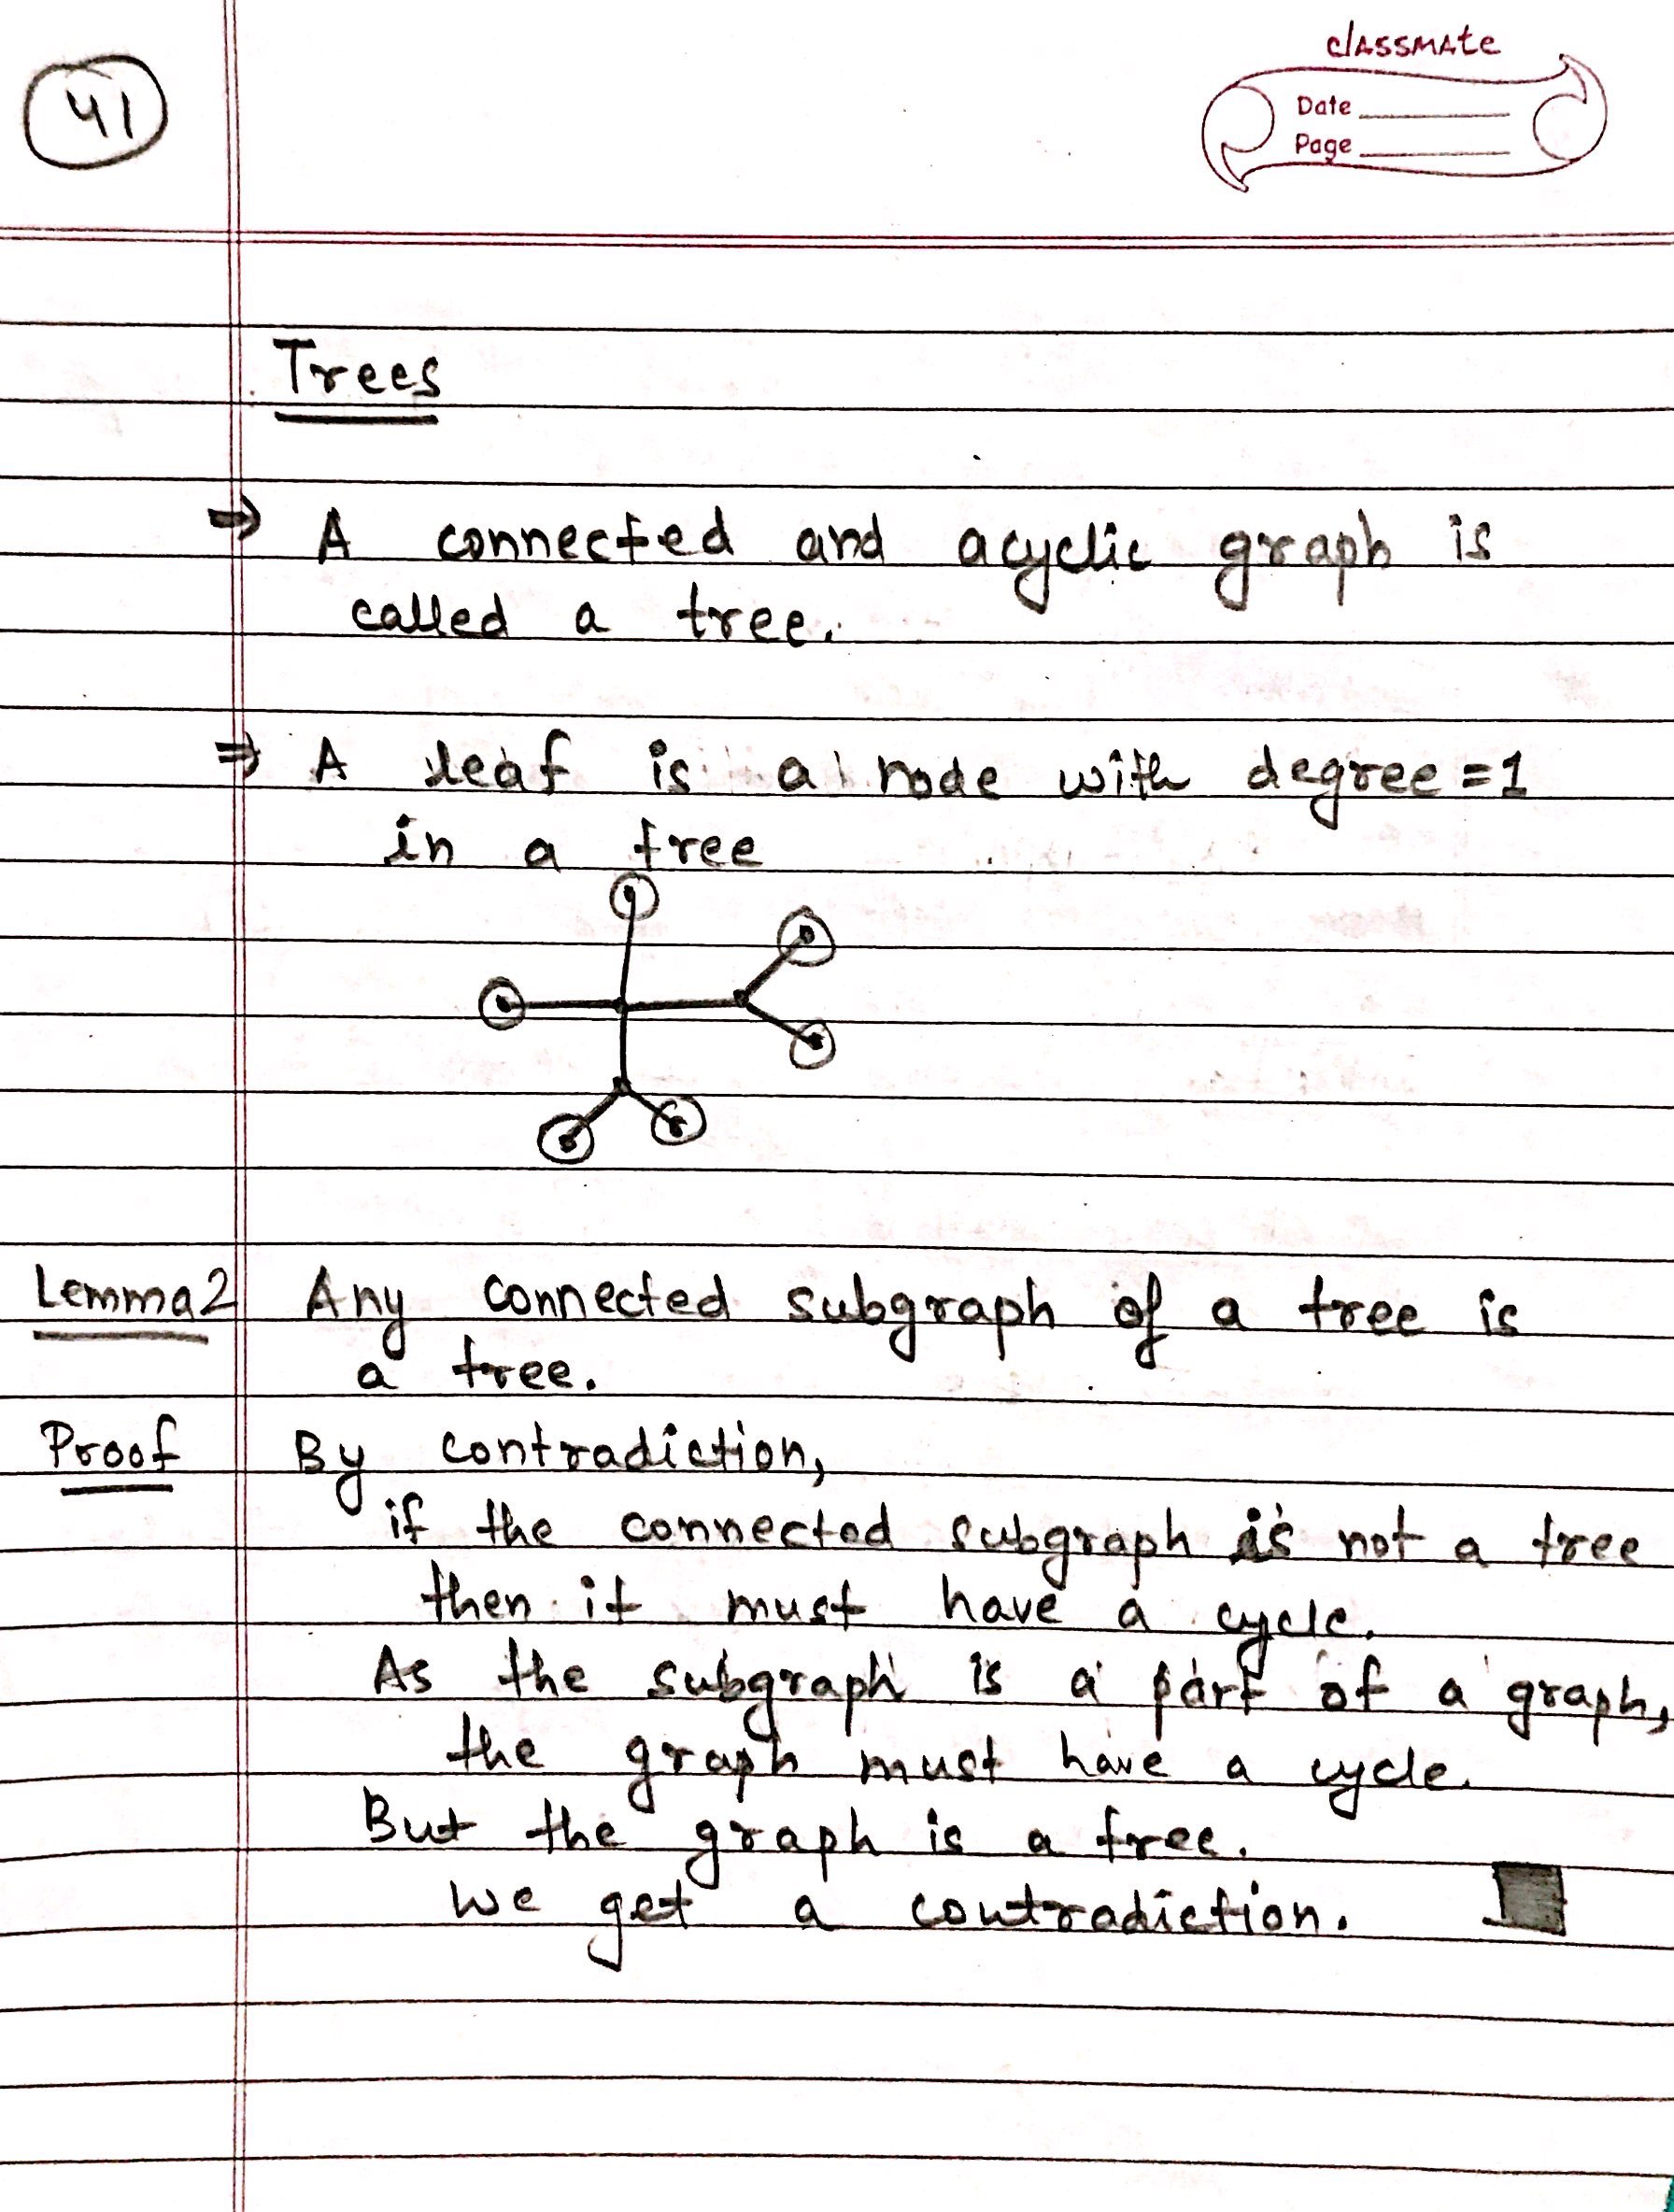 41
classmate
Date
Page
Trees
⇒ A connected and acyclic graph is
called a tree.
⇒ A leaf is a node with degree=1
in a tree
Lemma2 Any connected subgraph of a tree is
a tree.
Proof By contradiction,
if the connected subgraph is not a tree
then it must have a cycle.
As the subgraph is a part of a graph,
the graph must have a cycle.
But the graph is a tree.
We get a contradiction.